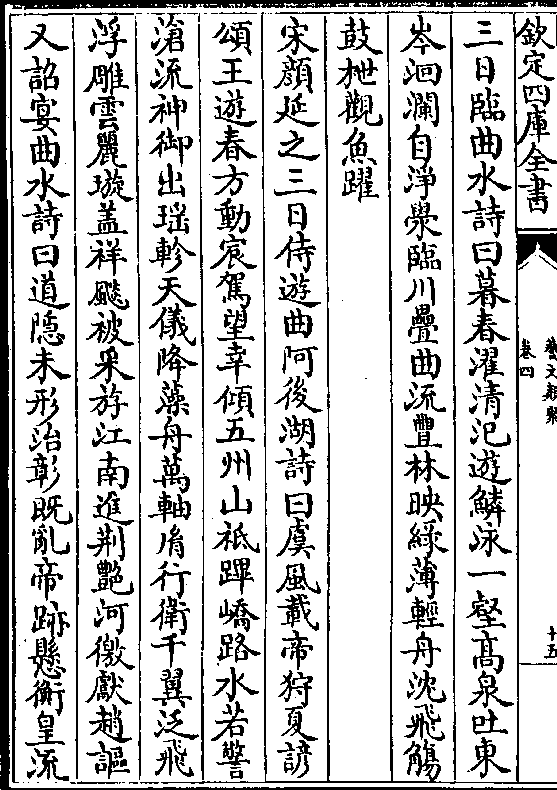 欽定四庫全書
藝文類聚
卷四
十五
三日臨曲水詩曰暮春濯清汜遊鱗泳一壑高泉吐東
岑洄瀾自淨㶜臨川疊曲流豐林映綠薄輕舟沈飛觴
鼓枻觀魚躍
宋顔延之三日侍遊曲阿後湖詩曰虞風載帝狩夏諺
頌王遊春方動宸駕望幸傾五州山祗蹕嶠路水若警
滄流神御出瑶軫天儀降藻舟萬軸胤行衛千翼泛飛
浮雕雲麗璇蓋祥飈被采斿江南進荆艶河激獻趙謳
又詔宴曲水詩曰道隱未形治彰既亂帝跡懸衡皇流